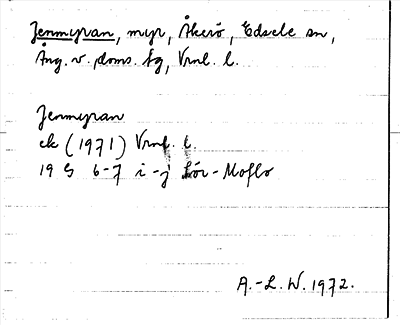 Jenmyran, myr, Åkerö, Edsele sn,
Ång. v. doms. fg, Vrnl. l.
Jenmyran
ek (1971) Vrnl. l.
19 G 6-7 i-j Lör-Moflo
A.-L. W. 1972.